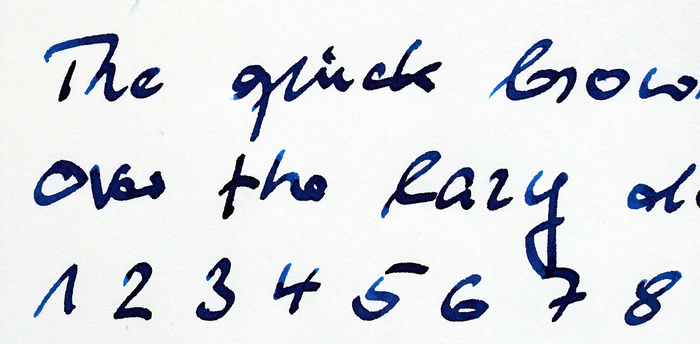 The quick brow
Over the lazy d
1 2 3 4 5 6 7 8